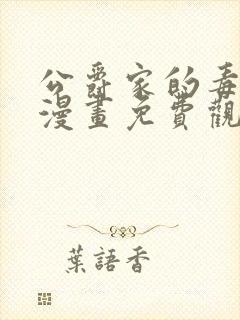 公爵家的毒
漫畫免費觀
葉語香